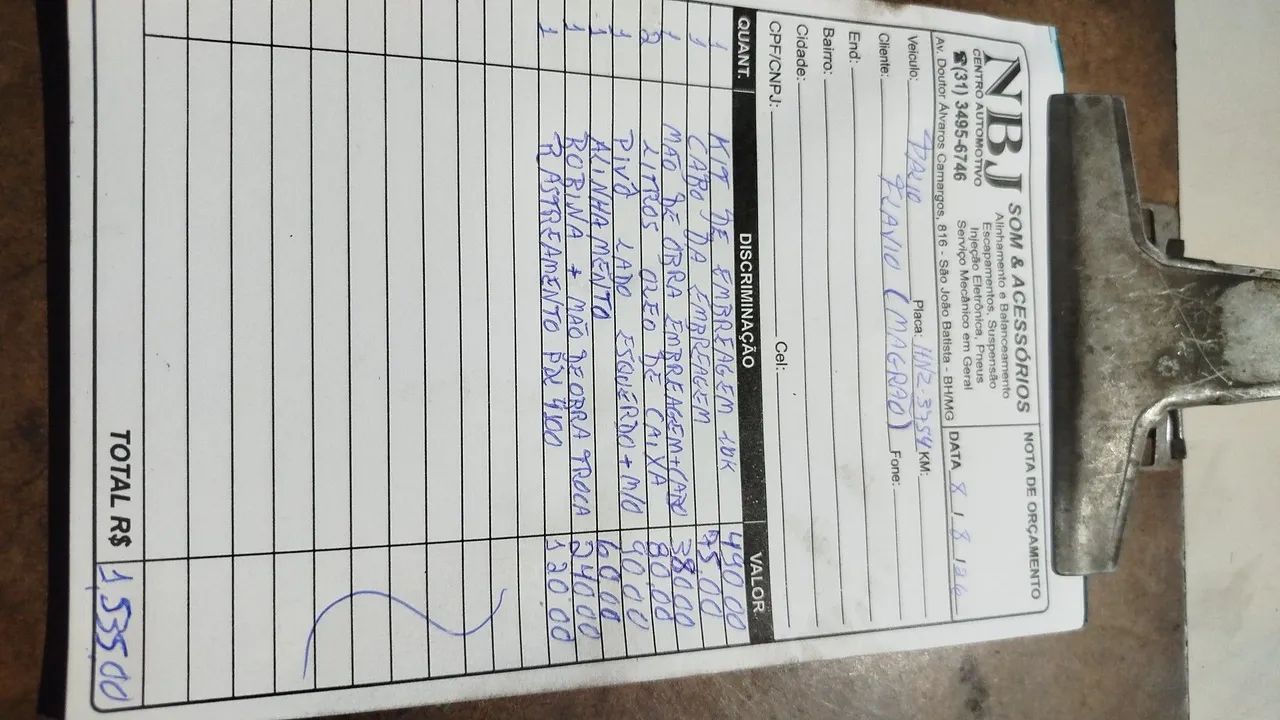 NBJ SOM & ACESSÓRIOS
CENTRO AUTOMOTIVO
☎(31) 3495-6746
Alinhamento e Balanceamento
Escapamentos, Suspensão
Injeção Eletrônica, Pneus
Serviço Mecânico em Geral
Av. Doutor Álvaros Camargos, 816 - São João Batista - BH/MG
NOTA DE ORÇAMENTO
DATA 8 / 8 / 26
Veículo: PALIO Placa: HNZ 3754 KM:
Cliente: FLAVIO (MAGRÃO) Fone:
End:
Bairro:
Cidade: Cel:
CPF/CNPJ:
QUANT. DISCRIMINAÇÃO VALOR
1 KIT DE EMBREAGEM 490.00
1 CABO DA EMBREAGEM 75.00
1 MÃO DE OBRA EMBREAGEM+CABO 380.00
2 LITROS OLEO DE CAIXA 80.00
1 PIVÔ LADO ESQUERDO + M/O 90.00
1 ALINHAMENTO 60.00
1 BOBINA + MÃO DE OBRA TROCA 240.00
1 RASTREAMENTO 120.00
TOTAL R$ 1,535.00